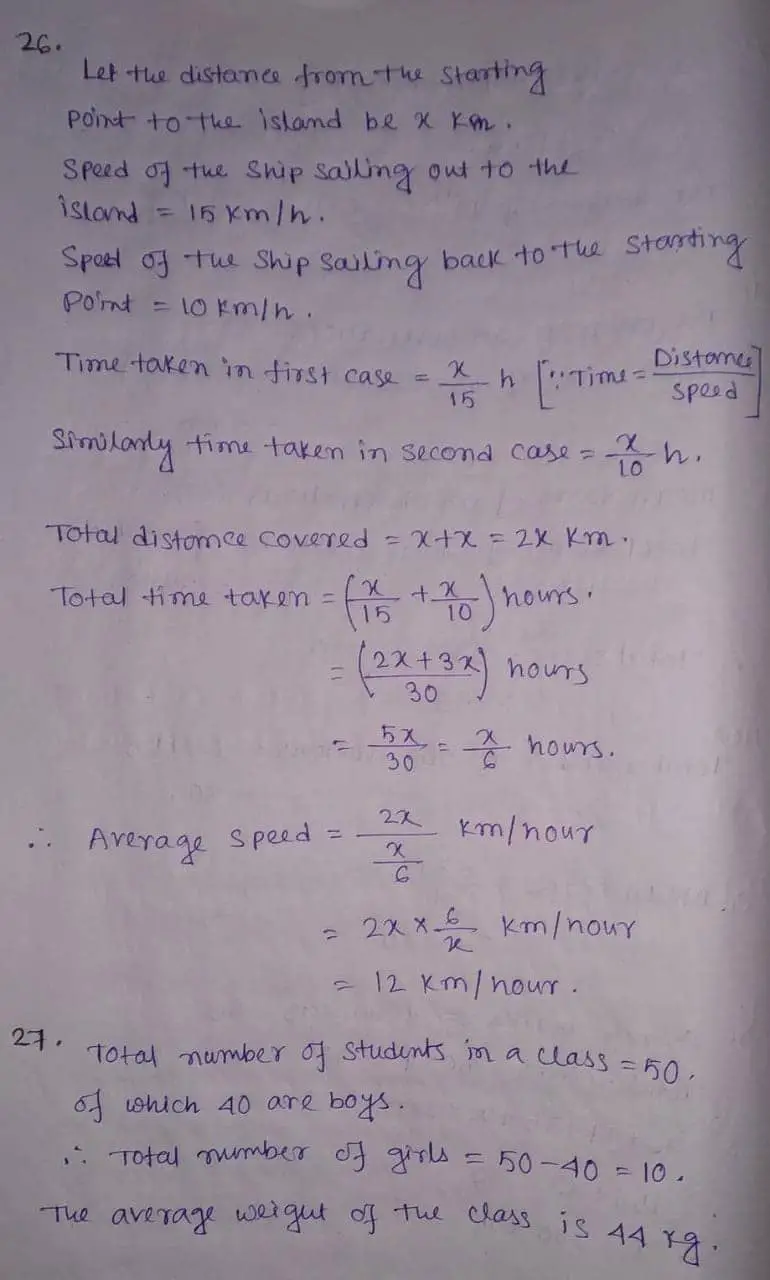 26.
Let the distance from the starting
point to the island be x km.
Speed of the ship sailing out to the
island = 15 km/h.
Speed of the ship sailing back to the starting
point = 10 km/h.
Time taken in first case = x/15 h [∵ Time = Distance/speed]
Similarly time taken in second case = x/10 h.
Total distance covered = x+x = 2x km.
Total time taken = (x/15 + x/10) hours.
= (2x+3x/30) hours
= 5x/30 = x/6 hours.
∴ Average speed = 2x/(x/6) km/hour
= 2x × 6/x km/hour
= 12 km/hour.
27. Total number of students in a class = 50.
of which 40 are boys.
∴ Total number of girls = 50-40 = 10.
The average weight of the class is 44 kg.